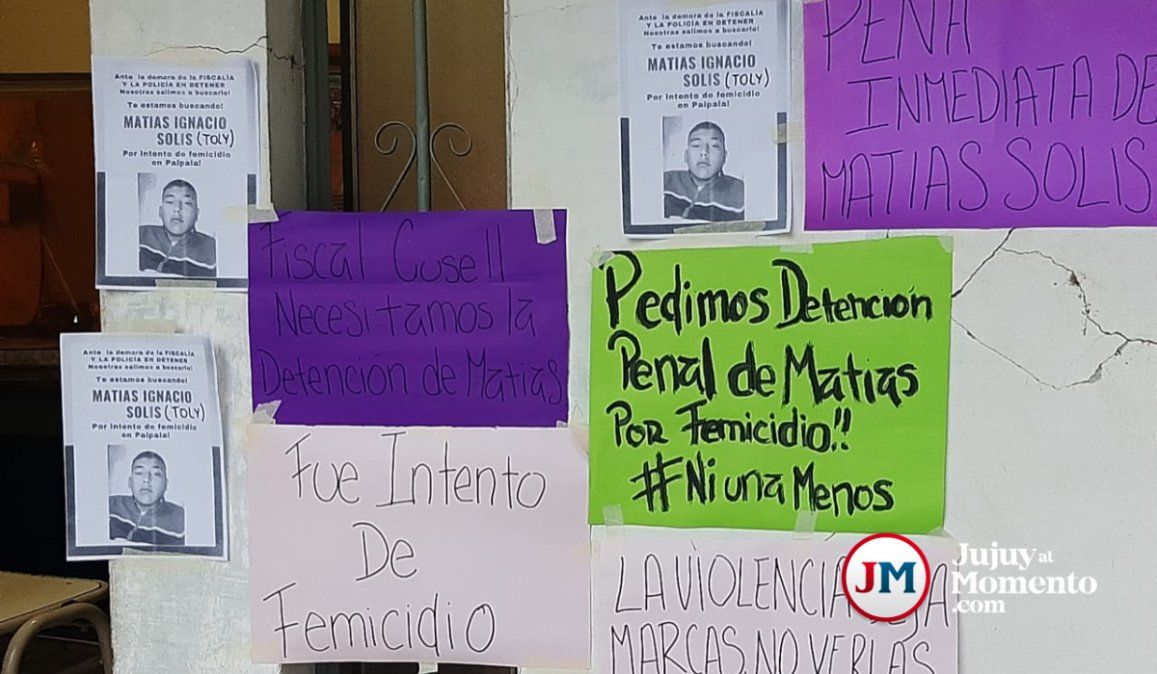 Ante la demora de la FISCALÍA
Y LA POLICÍA EN DETENER
Nosotras salimos a buscarlo!
Te estamos buscando!
MATIAS IGNACIO
SOLIS (TOLY)
Por intento de femicidio
en Palpala!
Ante la demora de la FISCALÍA
Y LA POLICÍA EN DETENER
Nosotras salimos a buscarlo!
Te estamos buscando!
MATIAS IGNACIO
SOLIS (TOLY)
Por intento de femicidio
en Palpala!
PENA
INMEDIATA DE
MATIAS SOLIS
Fiscal Cusell
Necesitamos la
Detención de Matias
Pedimos Detención
Penal de Matias
Por Femicidio!!
#Ni una Menos
Ante la demora de la FISCALÍA
Y LA POLICÍA EN DETENER
Nosotras salimos a buscarlo!
Te estamos buscando!
MATIAS IGNACIO
SOLIS (TOLY)
Por intento de femicidio
en Palpala!
Fue Intento
De
Femicidio
LA VIOLENCIA
MARCAS, NO VERLAS
JM
Jujuy al
Momento
.com